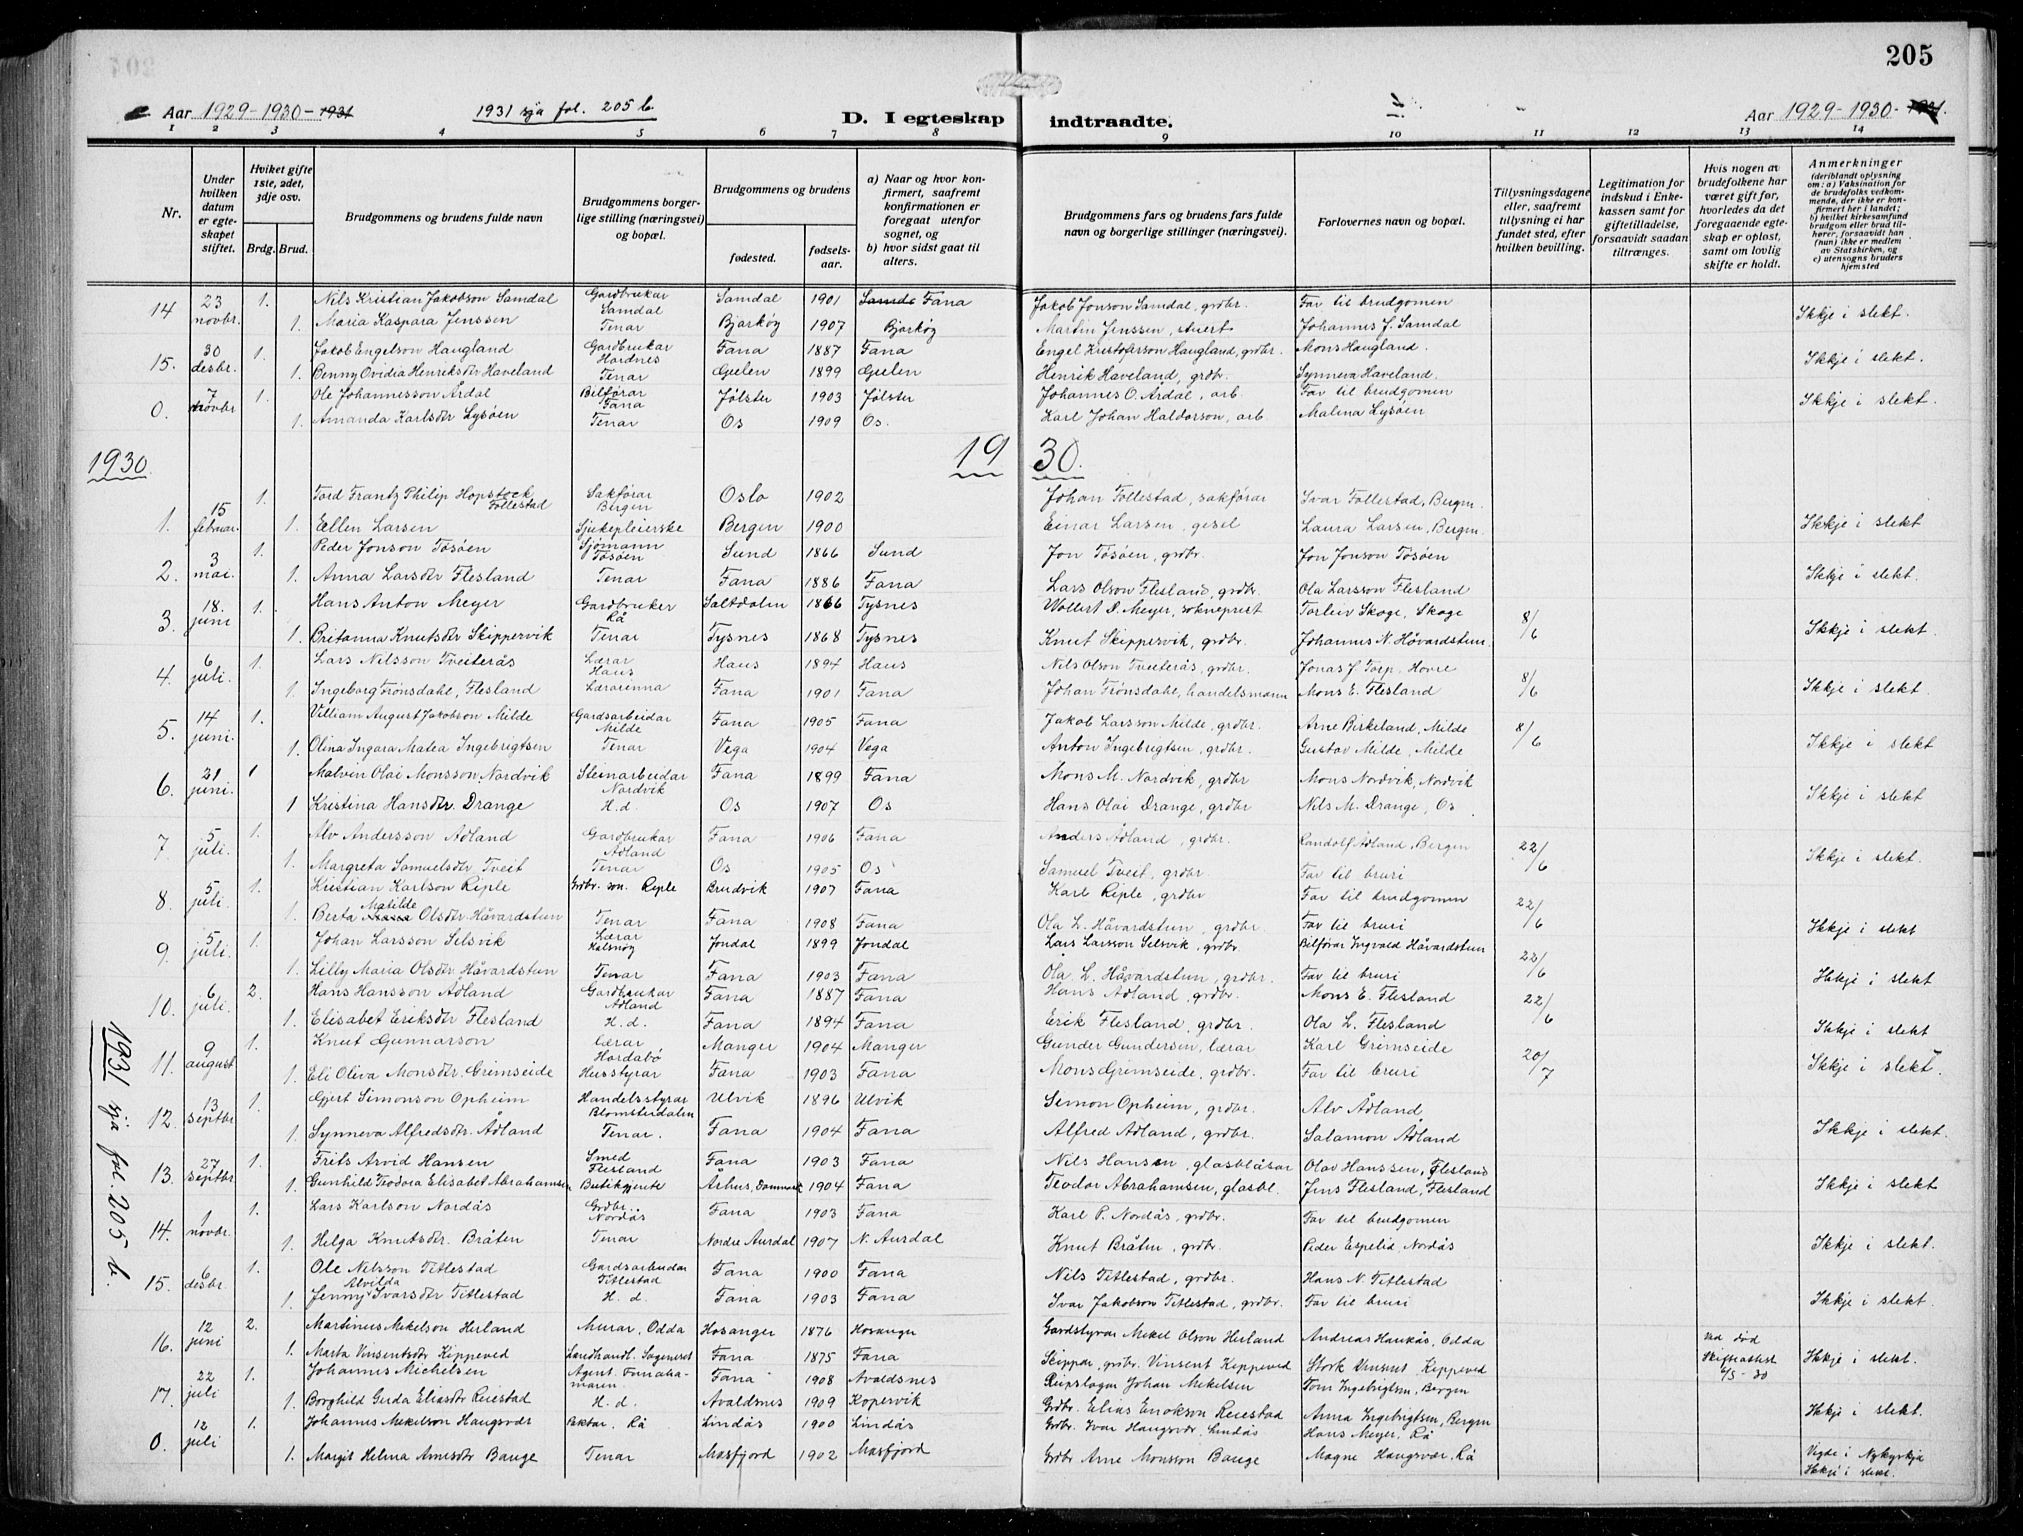 205
Aar 1929-1930-1931 1931 sja fol. 205 b. D. I egteskap indtraadte. Aar 1929-1930-1931.
1 2 3 4 5 6 7 8 9 10 11 12 13 14
Nr.
Under hvilken datum er egteskapet stiftet.
Hviket gifte 1ste, 2det, 3dje osv.
Brdg. Brud.
Brudgommens og brudens fulde navn
Brudgommens borgerlige stilling (næringsvei) og bopæl.
Brudgommens og brudens
fødested.
fødselsaar.
a) Naar og hvor konfirmert, saafremt konfirmationen er foregaat utenfor sognet, og
b) hvor sidst gaat til alters.
Brudgommens fars og brudens fars fulde navn og borgerlige stillinger (næringsvei).
Forlovernes navn og bopæl.
Tillysningsdagene eller, saafremt tillysning ei har fundet sted, efter hvilken bevilling.
Legitimation for indskud i Enkekassen samt for giftetilladelse, forsaavidt saadan tiltrænges.
Hvis nogen av brudefolkene har været gift før, hvorledes da det foregaaende egteskap er opløst, samt om lovlig skifte er holdt.
Anmerkninger (deriblandt oplysning om: a) Vaksination for de brudefolks vedkommende, der ikke er konfirmert her i landet; b) hvilket kirkesamfund brudgom eller brud tilhører, forsaavidt han (hun) ikke er medlem av Statskirken, og c) utensogns bruders hjemsted
14 23 novbr. 1. Nils Kristian Jakobson Samdal Gardbrukar Samdal Samdal 1901 Fana Jakob Jonson Samdal, grdbr. Far til brudgomen Ikkje i slekt.
1. Maria Kaspara Jenssen Tenar Bjarkøy 1907 Bjarkøy Martin Jenssen, Johannes J. Samdal
15. 30 desbr. 1. Jakob Engelson Haugland Gardbrukar Hordnes Fana 1887 Fana Engel Kristofersson Haugland, grdbr. Mons Haugland. Ikkje i slekt.
1. Benny Ovidia Henriksdtr Haveland Tenar Gulen 1899 Gulen Henrik Haveland, grdbr. Synneva Haveland.
0. 7 novbr 1. Ole Johannesson Årdal Bilførar Fana Jølster 1903 Jølster Johannes O. Årdal, arb Far til brudgomen Ikkje i slekt.
1. Amanda Karlsdtr Lysøen Tenar Os 1909 Os. Karl Johan Haldorson, arb Malina Lysøen
1930. 1930.
1. 15 februar. 1. Tord Frantz Philip Hopstock Follestad Sakførar Bergen Oslo 1902 Johan Follestad, sakførar Ivar Follestad, Bergen Ikkje i slekt
1. Ellen Larsen Sjukepleierske Bergen 1900 Einar Larsen, gesel Laura Larsen, Bergen.
2. 3 mai. 1. Peder Jonson Tøsøen Sjømann Tøsøen Sund 1866 Sund Jon Tøsøen, grdbr. Jon Jonson Tøsøen Ikkje i slekt.
1. Anna Larsdtr Flesland Tenar Fana 1886 Fana Lars Olson Flesland, grdbr. Ola Larsson Flesland
3. 18. juni 1. Hans Anton Meyer Gardbruker Rå Saltdalen 1866 Tysnes Wollert D. Meyer, sokneprest Torleiv Skoge, Skoge 8/6 Ikkje i slekt
1. Britanna Knutsdtr Skippervik Tenar Tysnes 1868 Tysnes Knut Skippervik, grdbr. Johannes N. Håvardstun.
4. 6 juli. 1. Lars Nilsson Tveiterås Lærar Haus Haus 1894 Haus Nils Olson Tveiterås, grdbr. Jonas J. Torp, Hovre 8/6 Ikkje i slekt.
1. Ingeborg Trønsdahe, Flesland Lærarinna Fana 1901 Fana Johan Trønsdahe, handelsmann Mons E. Flesland
5. 14 juni. 1. Villiam August Jakobson Milde Gardsarbeidar Milde Fana 1905 Fana Jakob Larsson Milde, grdbr. Arne Birkeland, Milde 8/6 Ikkje i slekt
1. Olina Ingara Matea Ingebrigtsen Tenar Vega 1904 Vega Anton Ingebrigtsen, grdbr. Gustav Milde, Milde
6. 21 juni. 1 Malvin Olai Monsson Nordvik Steinarbeidar Nordvik Fana 1899 Fana Mons M. Nordvik, grdbr Mons Nordvik, Nordvik Ikkje i slekt
1 Kristina Hansdtr. Drange H.d. Os 1907 Os Hans Olai Drange, grdbr Nils M. Drange, Os
7 5 juli. 1. Alv Andersson Ådland Gardbrukar Ådland Fana 1906 Fana Anders Ådland, grdbr. Randolf Ådland, Bergen 22/6 Ikkje i slekt.
1. Margreta Samuelsdtr Tveit Tenar Os 1905 Os Samuel Tveit, grdbr. Far til bruri
8. 5 juli. 1. Kristian Karlson Riple Grdbr. son. Riple Bruvik 1907 Fana Karl Riple, grdbr Far til brudgomen 22/6 Ikkje i slekt
1. Berta Matilde Olsdtr Håvardstun Tenar Fana 1908 Fana Ola L. Håvardstun, grdbr. Far til bruri
9. 5 juli. 1. Johan Larsson Selsvik Lærar Halsnøy Jondal 1899 Jondal Lars Larsson Selsvik, grdbr. Bilførar Ingvald Håvardstun 22/6 Ikkje i slekt
1. Lilly Maria Olsdtr Håvardstun Tenar Fana 1903 Fana Ola L. Håvardstun, grdbr. Far til bruri
10. 6 juli. 2. Hans Hansson Ådland Gardbrukar Ådland Fana 1887 Fana Hans Ådland, grdbr. Mons E. Flesland 22/6 Ikkje i slekt
1. Elisabet Eriksdtr Flesland H.d. Fana 1894 Fana Erik Flesland, grdbr. Ola L. Flesland
11. 9 august 1. Knut Gunnarson Lærar Hordabø Manger 1904 Manger Gunder Gundersen, lærar Karl Grimseide 20/7 Ikkje i slekt.
1. Eli Oliva Monsdtr. Grimseide Husstyrar Fana 1903 Fana Mons Grimseide, grdbr. Far til bruri
12. 13 septbr 1. Gjert Simonson Opheim Handelsstyrar Blomsterdalen Ulvik 1896 Ulvik Simon Opheim, grdbr. Alv Ådland Ikkje i slekt.
1. Synneva Alfredsdtr. Ådland Tenar. Fana 1904 Fana Alfred Ådland, grdbr. Salamon Ådland
13. 27 septbr 1. Frits Arvid Hansen Smed Flesland Fana 1903 Fana Nils Hansen, glasblåsar Olav Hanssen, Flesland Ikkje i slekt
1. Gunhild Teodora Elisabet Abrahamsen Butikgjente Århus, Danmark 1904 Fana Teodor Abrahamsen, glasbl. Jens Flesland, Flesland
14. 1 novbr. 1. Lars Karlson Nordås Grdbr. Nordås Fana 1903 Fana Karl P. Nordås, grdbr. Far til brudgomen Ikkje i slekt
1. Helga Knutsdtr. Bråten Tenar Nordre Aurdal 1907 N. Aurdal Knut Bråten, grdbr. Peder Espelid, Nordås
15. 6 desbr. 1. Ole Nilsson Titlestad Gardsarbeidar Titlestad Fana 1900 Fana Nils Titlestad, grdbr. Hans N. Titlestad Ikkje i slekt
1. Jenny Alvilda Ivarsdtr Titlestad H.d. Fana 1903 Fana Ivar Jakobson Titlestad, grdbr. Far til bruri
16. 12 juni 2. Martinus Mekelson Herland Murar, Odda Hosanger 1876 Hosanger Gardstyrar Mekel Olson Herland Andreas Haukås, Odda ved død Skifteattest 6/5-30 Ikkje i slekt.
1. Marta Vinsentsdtr Kippeved Landhandl. Fana 1875 Fana Skippar, grdbr. Vinsent Kippeved Stork Vinsent Kippeved
17. 22 juli 1. Johannes Michelsen Agent. Fanahamaren. Fana 1908 Avaldsnes Reipslagar Johan Mekelsen Tom Ingebrigtsen, Bergen Ikkje i slekt.
1. Borghild Gerda Eliasdtr Reiestad H.d. Avaldsnes 1909 Kopervik Grdbr. Elias Erikson Reiestad Anna Ingebrigtsen, Bergen
0. 12 juli 1. Johannes Mekelson Haugsvær Rå Lindås 1900 Lindås Grdbr. Ivar Haugsvær, Lindås Hans Meyer, Rå Vigde i Nykyrkja Ikkje i slekt.
1. Margit Helma Arnesdtr Bauge Tenar Masfjord 1902 Masfjord Grdbr Arne Monsson Bauge Magne Haugsvær, Rå
1931 sja fol. 205 b.